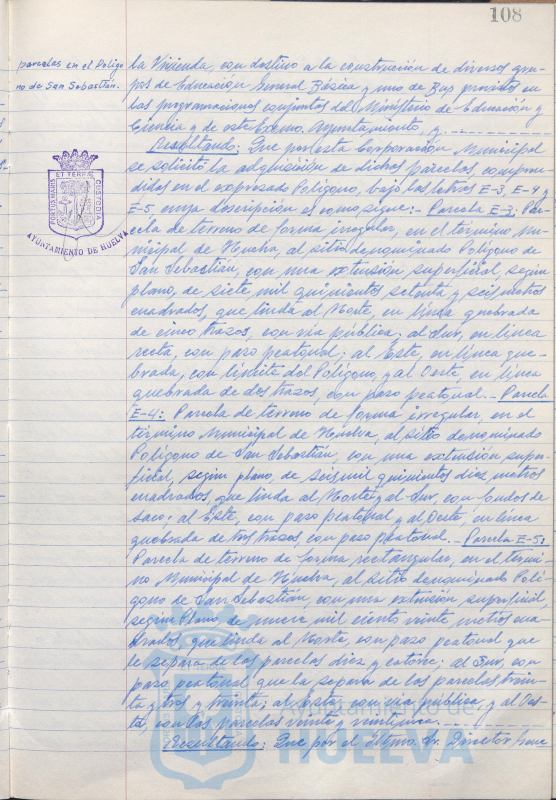 108
parcelas en el Polígo
no de San Sebastián.
la Vivienda, con destino a la construcción de diversos gru-
pos de Educación General Básica y uno de Bup previstos en
las programaciones conjuntas del Ministerio de Educación y
Ciencia y de este Excmo. Ayuntamiento, y.
Resultando: Que por esta Corporación Municipal
se solicitó la adquisición de dichas parcelas, compren-
didas en el expresado Polígono, bajo las letras E-3, E-4 y
E-5, cuya descripción es como sigue:- Parcela E-3: Par-
cela de terreno de forma irregular, en el término Mu-
nicipal de Huelva, al sitio denominado Polígono de
San Sebastián, con una extensión superficial, según
plano, de siete mil quinientos setenta y seis metros
cuadrados, que linda al Norte, en línea quebrada
de cinco trazos, con vía pública; al Sur, en línea
recta, con paso peatonal; al Este, en línea que-
brada, con límite del Polígono, y al Oeste, en línea
quebrada de dos trazos, con paso peatonal.- Parcela
E-4: Parcela de terreno de forma irregular, en el
término Municipal de Huelva, al sitio denominado
Polígono de San Sebastián, con una extensión super-
ficial, según plano, de seis mil quinientos diez metros
cuadrados, que linda al Norte y al Sur, con fondos de
saco; al Este, con paso peatonal y al Oeste, en línea
quebrada de tres trazos, con paso peatonal.- Parcela E-5:
Parcela de terreno de forma rectangular, en el térmi-
no Municipal de Huelva, al sitio denominado Polí-
gono de San Sebastián, con una extensión superficial,
según Plano, de nueve mil ciento veinte metros cua-
drados, que linda al Norte, con paso peatonal que
le separa de las parcelas diez y catorce; al Sur, con
paso peatonal que la separa de las parcelas trein-
ta y tres y treinta; al Este, con vía pública, y al Oes-
te, con las parcelas veinte y veintiuna.
Resultando: Que por el Iltmo. Sr. Director Gene
PORTUS MARIS ET TERRAE CUSTODIA
AYUNTAMIENTO DE HUELVA
Ayuntamiento de
HUELVA